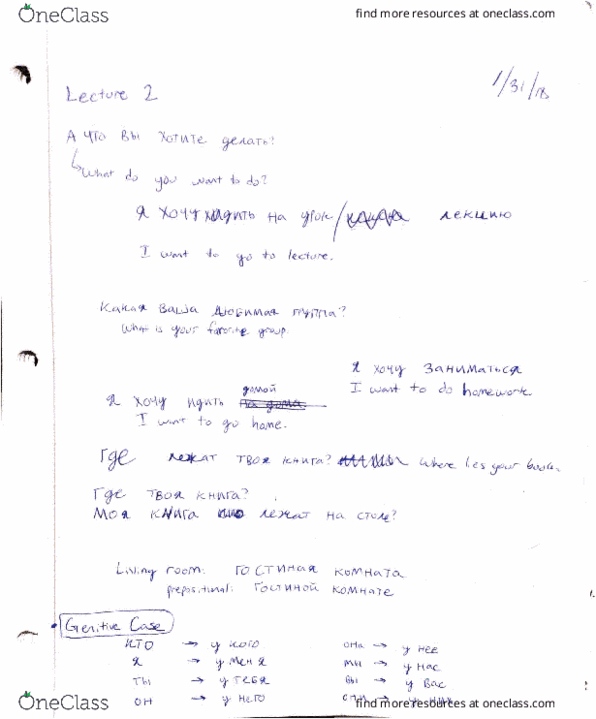 OneClass
find more resources at oneclass.com
1/31/18
Lecture 2
А что вы хотите делать?
What do you want to do?
Я хочу ходить на урок/ лекцию
I want to go to lecture.
Какая ваша любимая группа?
What is your favorite group.
Я хочу заниматься
I want to do homework.
домой
Я хочу идить на дома.
I want to go home.
Где лежат твоя книга? Where lies your book.
Где твоя книга?
Моя книга лежат на столе?
Living room: гостиная комната
prepositional: гостиной комнате
Genitive Case
кто → у кого она → у нее
я → у меня мы → у нас
ты → у тебя вы → у вас
он → у него
OneClass
find more resources at oneclass.com